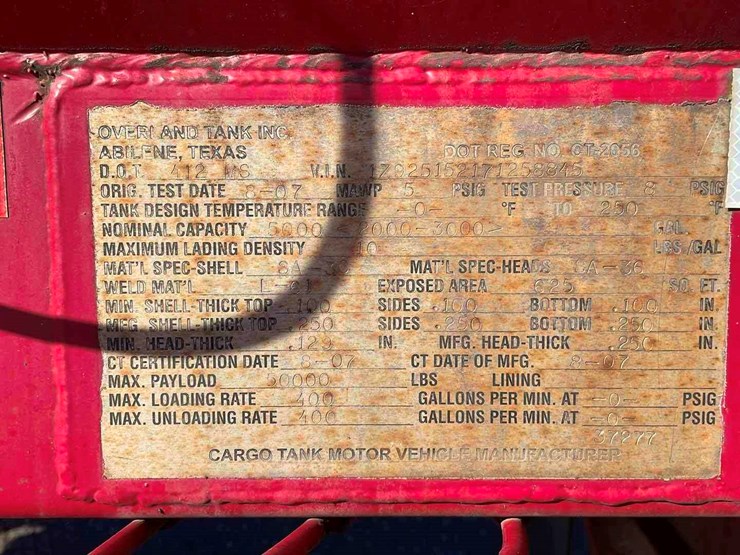 OVERLAND TANK INC.
ABILENE, TEXAS DOT REG NO CT-2056
D.O.T. 412 MS V.I.N.
ORIG. TEST DATE 8-07 MAWP 5 PSIG TEST PRESSURE 8 PSIG
TANK DESIGN TEMPERATURE RANGE -0- °F TO 250 °F
NOMINAL CAPACITY 5000 2000-3000 GAL.
MAXIMUM LADING DENSITY 10 LBS/GAL
MAT'L SPEC-SHELL SA-36 MAT'L SPEC-HEADS SA-36
WELD MAT'L L-61 EXPOSED AREA 625 SQ. FT.
MIN. SHELL-THICK TOP .100 SIDES .100 BOTTOM .100 IN.
MFG. SHELL-THICK TOP .250 SIDES .250 BOTTOM .250 IN.
MIN. HEAD-THICK .129 IN. MFG. HEAD-THICK .250 IN.
CT CERTIFICATION DATE 8-07 CT DATE OF MFG. 8-07
MAX. PAYLOAD 50000 LBS LINING
MAX. LOADING RATE 400 GALLONS PER MIN. AT -0- PSIG
MAX. UNLOADING RATE 400 GALLONS PER MIN. AT -0- PSIG
37277
CARGO TANK MOTOR VEHICLE MANUFACTURER